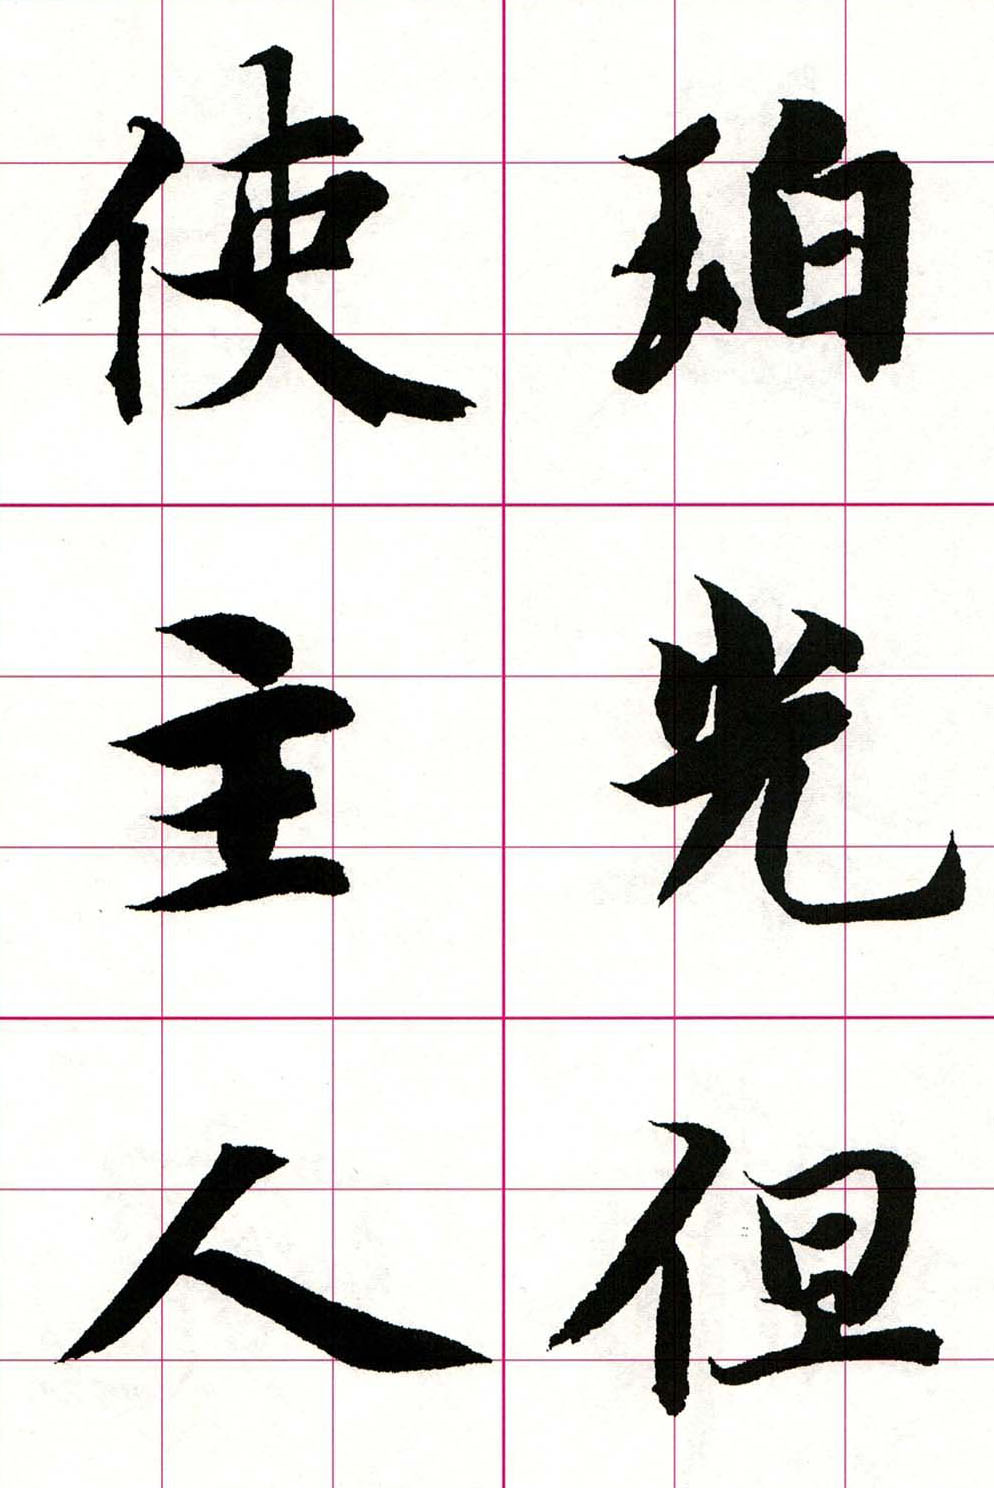 珀光但
使主人